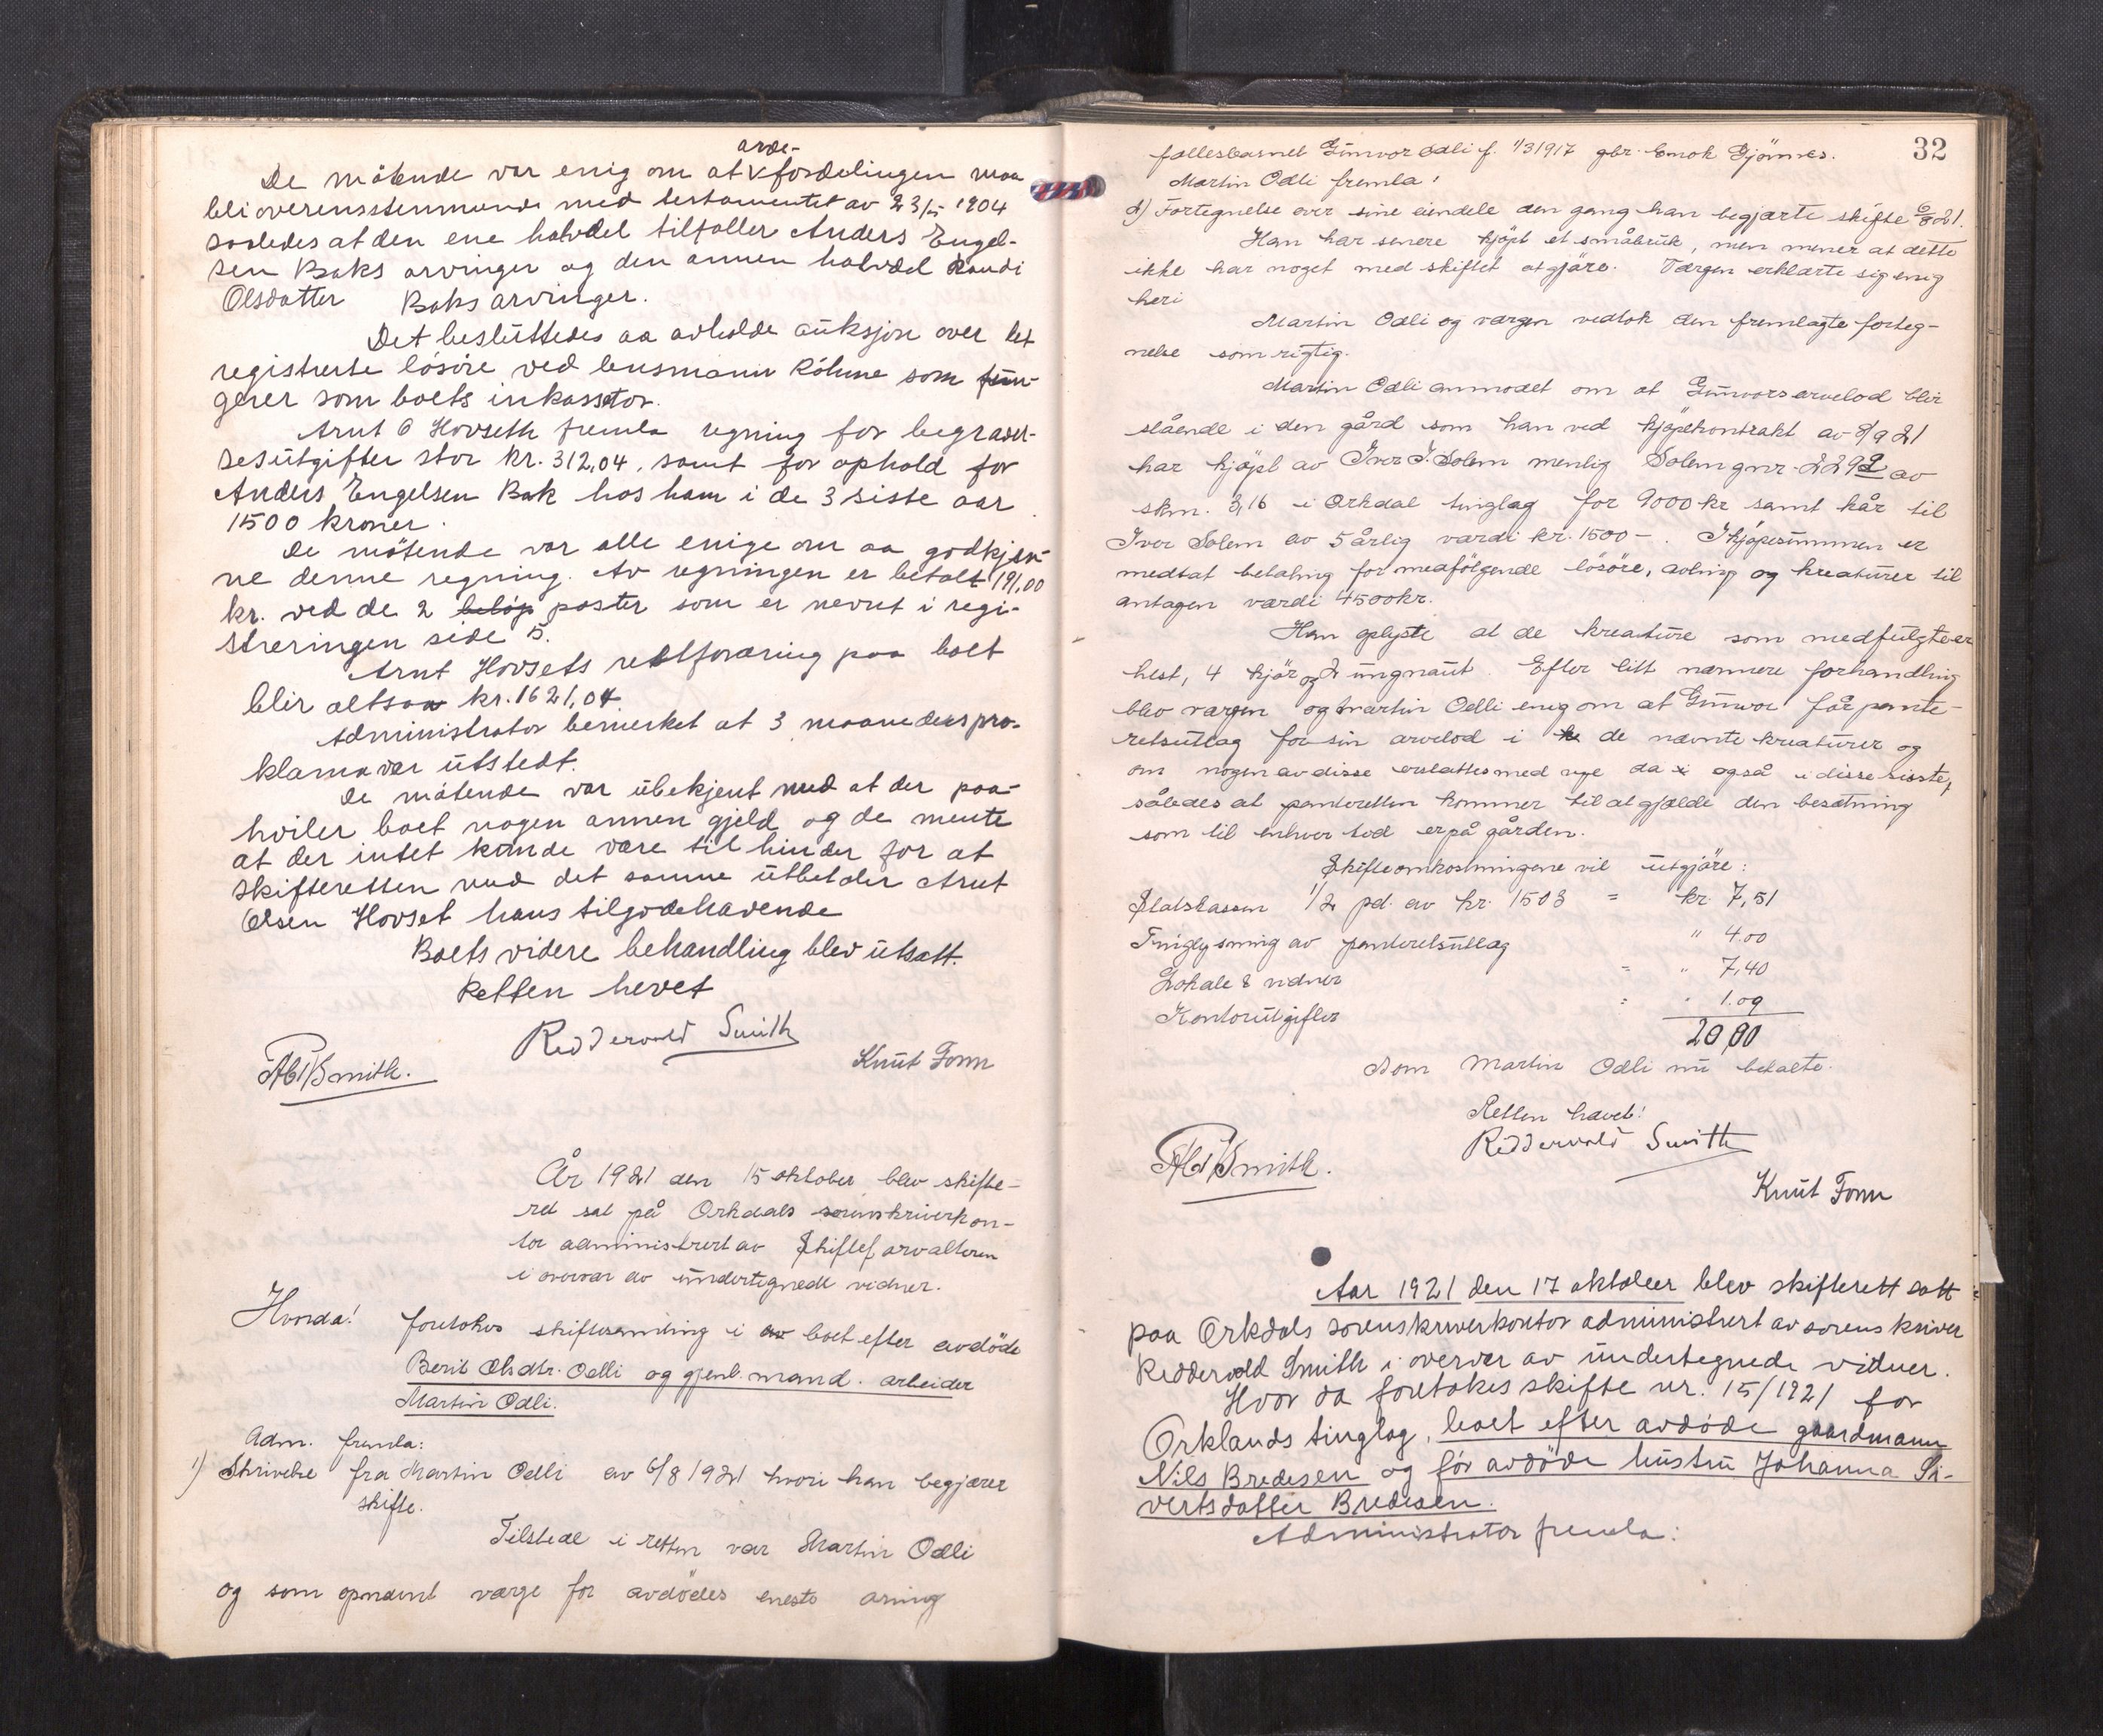 arve-
De mötende var enig om at v fordelingen maa
bli overensstemmende med testamentet av 23/5 1904
saaledes at den ene halvdel tilfaller Anders Engel-
sen Baks arvinger og den annen halvdel Randi
Olsdatter Baks arvinger.
Det besluttedes aa avholde auksjon over det
registrerte lösöre ved lensmann Röhme som fun-
gerer som boets inkassator.
Arnt O Hovseth fremla regning for begravel-
sesutgifter stor kr. 312,04, samt for ophold for
Anders Engelsen Bak hos ham i de 3 siste aar
1500 kroner.
De mötende var alle enige om aa godkjen-
ne denne regning. Av regningen er betalt 191,00
kr. ved de 2 beløp poster som er nevnt i regi-
streringen side 5.
Arnt Hovsets restfordring paa boet
blir altsaa kr. 1621,04.
Administrator bemerket at 3 maaneders pro-
klama var utstedt.
De mötende var ubekjent med at der paa-
hviler boet nogen annen gjeld og de mente
at der intet kunde være til hinder for at
skifteretten med det samme utbetaler Arnt
Olsen Hovset hans tilgodehavende
Boets videre behandling blev utsatt.
Retten hevet
Riddervold Smith
Knut Fonn
Smith.
År 1921 den 15 oktober blev skifte-
ret sat på Orkdals sorenskriverkon-
tor administrert av Skifteforvalteren
i overvær av undertegnede vidner.
Hvorda! foretokes skiftesamling i av boet efter avdöde
Berit Olsdtr. Odli og gjenl. mand. arbeider
Martin Odli.
Adm. fremla:
1) Skrivelse fra Martin Odli av 6/8 1921 hvori han begjærer
skifte.
Tilstede i retten var Martin Odli
og som opnævnt værge for avdödes eneste arving
32
fællesbarnet Gunvor Odli f. 1/3 1917 gbr. Enok Gjönnes.
Martin Odli fremla!
2) Fortegnelse over sine eiendele den gang han begjærte skifte 6/8 21.
Han har senere kjöpt et småbruk, men mener at dette
ikke har noget med skiftet at gjöre. Værgen erklærte sig enig
heri
Martin Odli og værgen vedtok den fremlagte forteg-
nelse som rigtig.
Martin Odli anmodet om at Gunvors arvelod blir
stående i den gård som han ved kjöpekontrakt av 8/9 21
har kjöpt av Iver J. Solem nemlig Solem gnr. 229 2 av
skm. 3,16 i Orkdal tinglag for 9000 kr samt kår til
Iver Solem av 5årlig værdi kr. 1500 -. I kjöpesummen er
medtat betaling for medfölgende lösöre, avling og kreaturer til
antagen værdi 4500 kr.
Han oplyste at de kreature som medfulgte er
hest, 4 kjör og 2 ungnaut. Efter litt nærmere forhandling
blev værgen og Martin Odli enig om at Gunvor får pante-
retsutlæg for sin arvelod i de nævnte kreaturer og
om nogen av disse erstattes med nye da også i disse sisste,
således at panteretten kommer til at gjælde den besætning
som til enhver tid er på gården.
Skifteomkostningene vil utgjöre:
Statskassen 1/2 pct. av kr. 1503 = kr. 7,51
Tinglysning av panteretsutlæg " 4.00
Lokale & vidner = " 7,40
Kontorutgifter = " 1.09
20,00
som Martin Odli nu betalte.
Retten hævet!
Riddervold Smith
Smith.
Knut Fonn
Aar 1921 den 17 oktober blev skifterett satt
paa Orkdals sorenskriverkontor administrert av sorenskriver
Riddervold Smith i overvær av undertegnede vidner.
Hvor da foretokes skifte nr. 15/1921 for
Orklands tinglag, boet efter avdöde gaardmann
Nils Bredesen og för avdöde hustru Johanna Si-
vertsdatter Bredesen.
Administrator fremla: